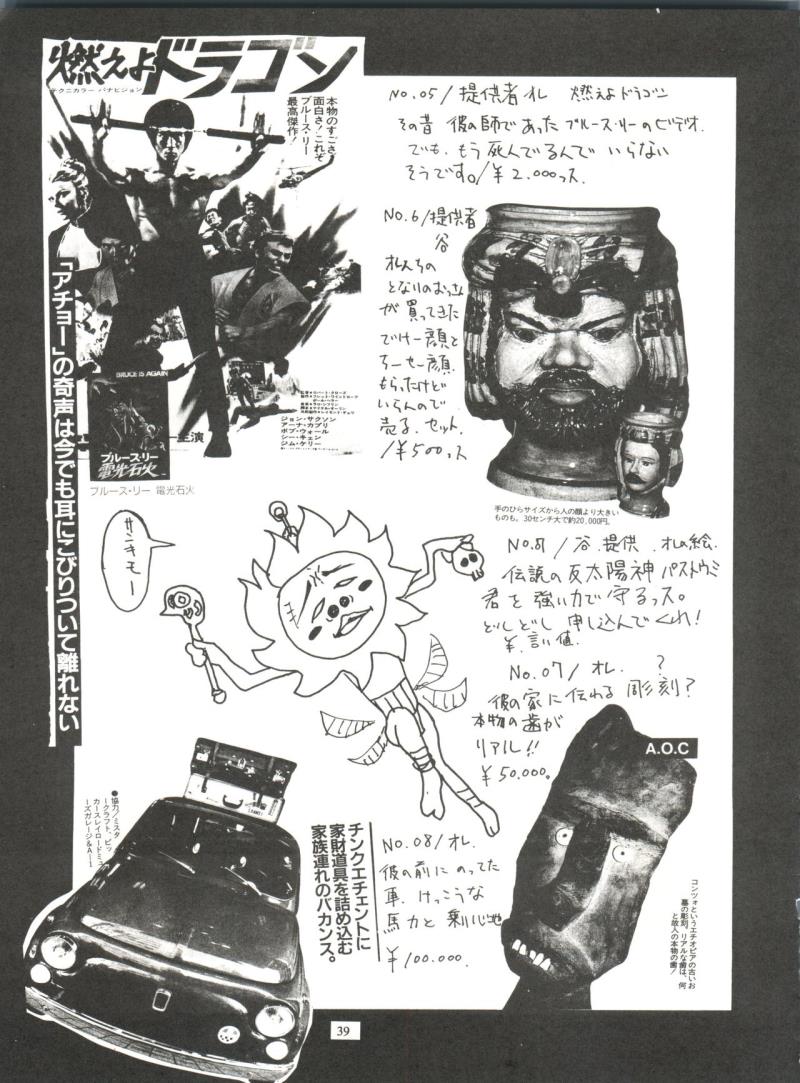 燃えよドラゴン
テクニカラー パナビジョン
本物のすごさ
面白さ!これぞ
ブルース・リー
最高傑作!
「アチョー」の奇声は今でも耳にこびりついて離れない
BRUCE IS AGAIN
ブルース・リー
電光石火
主演
ジョン・サクソン
アーナ・カプリ
ボブ・ウォール
シー・キェン
ジム・ケリー
ブルース・リー 電光石火
No.05/提供者オレ 燃えよドラゴン
その昔 彼の師であった ブルース・リーのビデオ.
でも、もう死んでるんで いらない
そうです。/¥2.000っス.
No.6/提供者
谷
オレんちの
となりのおっさん
が買ってきた
でけー顔と
ちーせー顔.
もらったけど
いらんので
売る.セット.
/¥500っス
手のひらサイズから人の顔より大きい
ものも。30センチ大で約20,000円。
サンキモー
No.8/谷.提供.オレの絵.
伝説の反太陽神パストウミ
君を強い力で守るっス。
どしどし申し込んでくれ!
¥.言い値.
No.07/オレ. ?
彼の家に伝わる彫刻?
本物の歯が
リアル!!
¥50.000。
A.O.C
コンツォというエチオピアの古いお
墓の彫刻。リアルな歯は、何
と故人の本物の歯!
●協力/ミスタ
ークラフト、ビッ
カースレイロードミュ
ーズガレージ&A−1
チンクエチェントに
家財道具を詰め込む
家族連れのバカンス。
No.08/オレ.
彼の前にのってた
車.けっこうな
馬力と乗り心地
¥100.000.
39